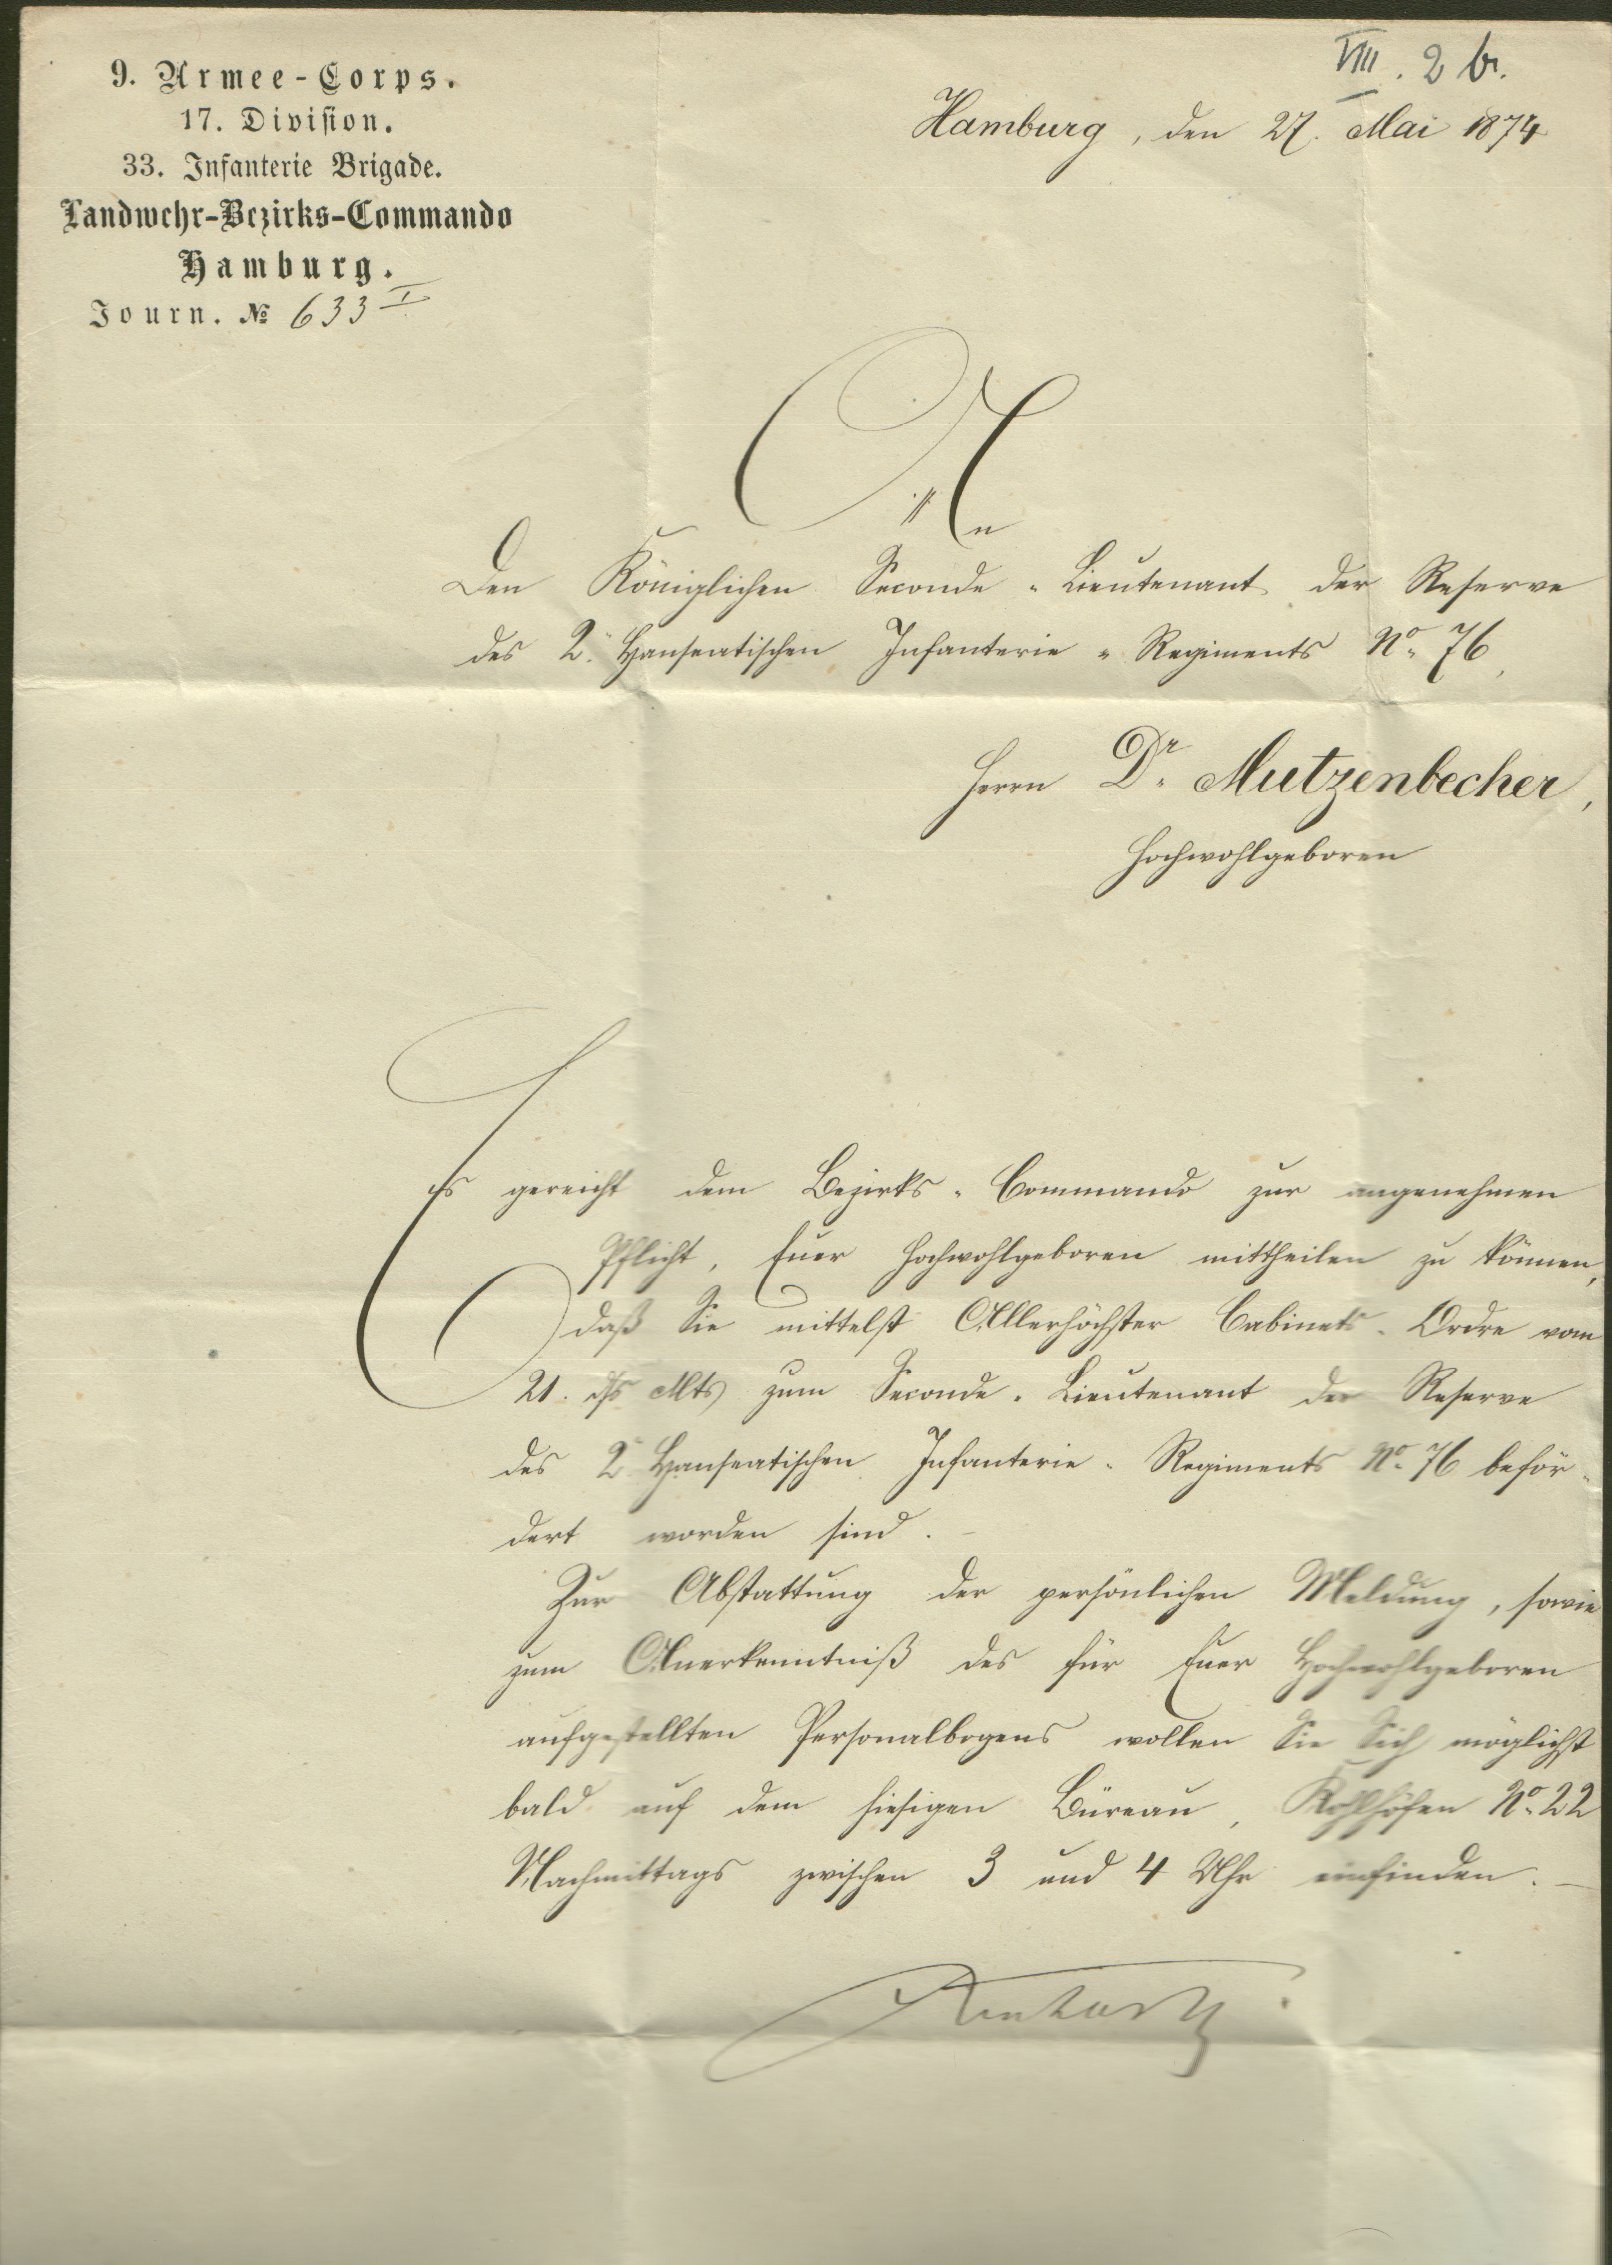 VIII. 2 b.
9. Armee-Corps.
17. Division.
33. Infanterie Brigade.
Landwehr-Bezirks-Commando
Hamburg.
Journ. № 633 I
Hamburg, den 27. Mai 1874
An
Den Königlichen Seconde-Lieutenant der Reserve
des 2. Hanseatischen Infanterie-Regiments No. 76,
Herrn Dr. Mutzenbecher,
Hochwohlgeboren
Es gereicht dem Bezirks-Commando zur angenehmen
Pflicht, Euer Hochwohlgeboren mittheilen zu können,
daß Sie mittelst Allerhöchster Cabinets-Ordre vom
21. ds Mts zum Seconde-Lieutenant der Reserve
des 2. Hanseatischen Infanterie-Regiments No. 76 beför-
dert worden sind. –
Zur Abstattung der persönlichen Meldung, sowie
zum Anerkenntniß des für Euer Hochwohlgeboren
aufgestellten Personalbogens wollen Sie Sich möglichst
bald auf dem hiesigen Büreau, Kohlhöfen No. 22
Nachmittags zwischen 3 und 4 Uhr einfinden. –